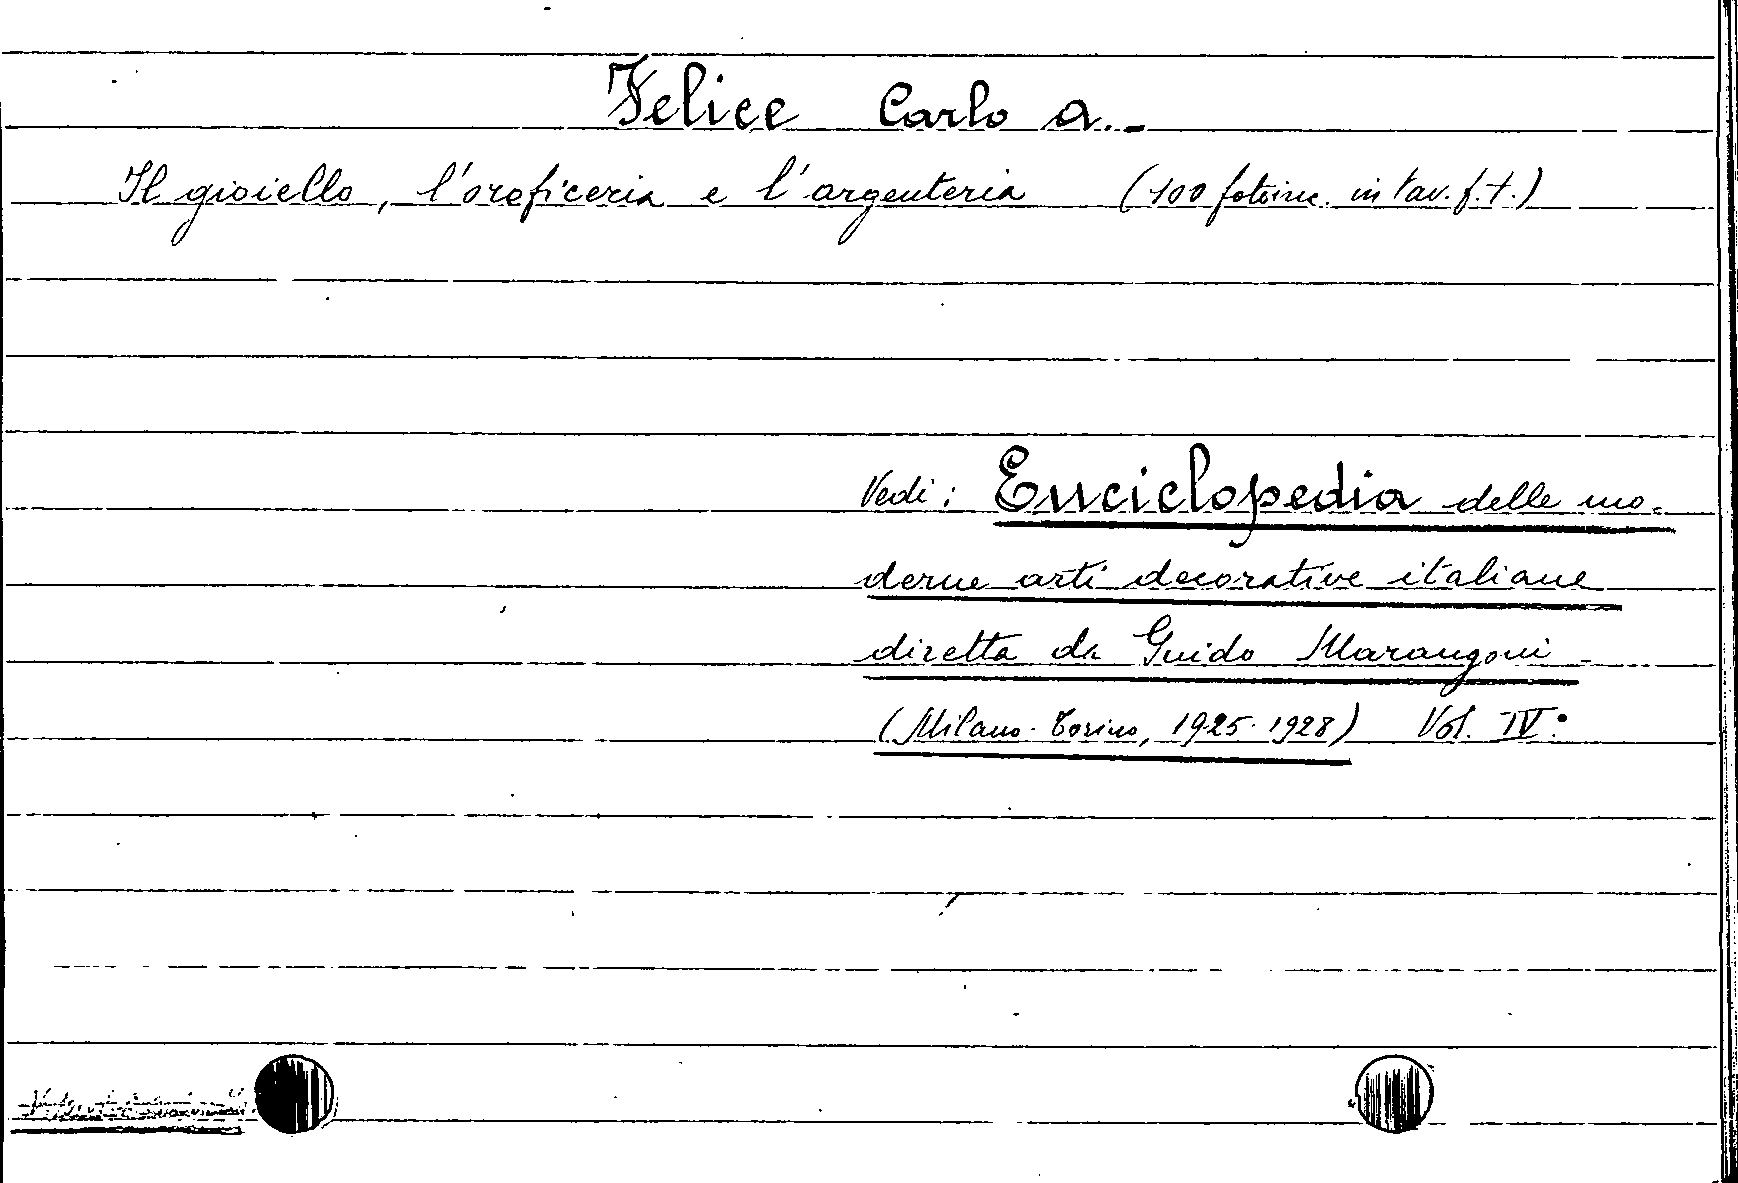 Felice Carlo A.-
Il gioiello, l'oreficeria e l'argenteria (100 fotoinc. in tav. f.t.)
Vedi: Enciclopedia delle mo-
derne arti decorative italiane
diretta da Guido Marangoni -
(Milano-Torino, 1925-1928) Vol. IV°